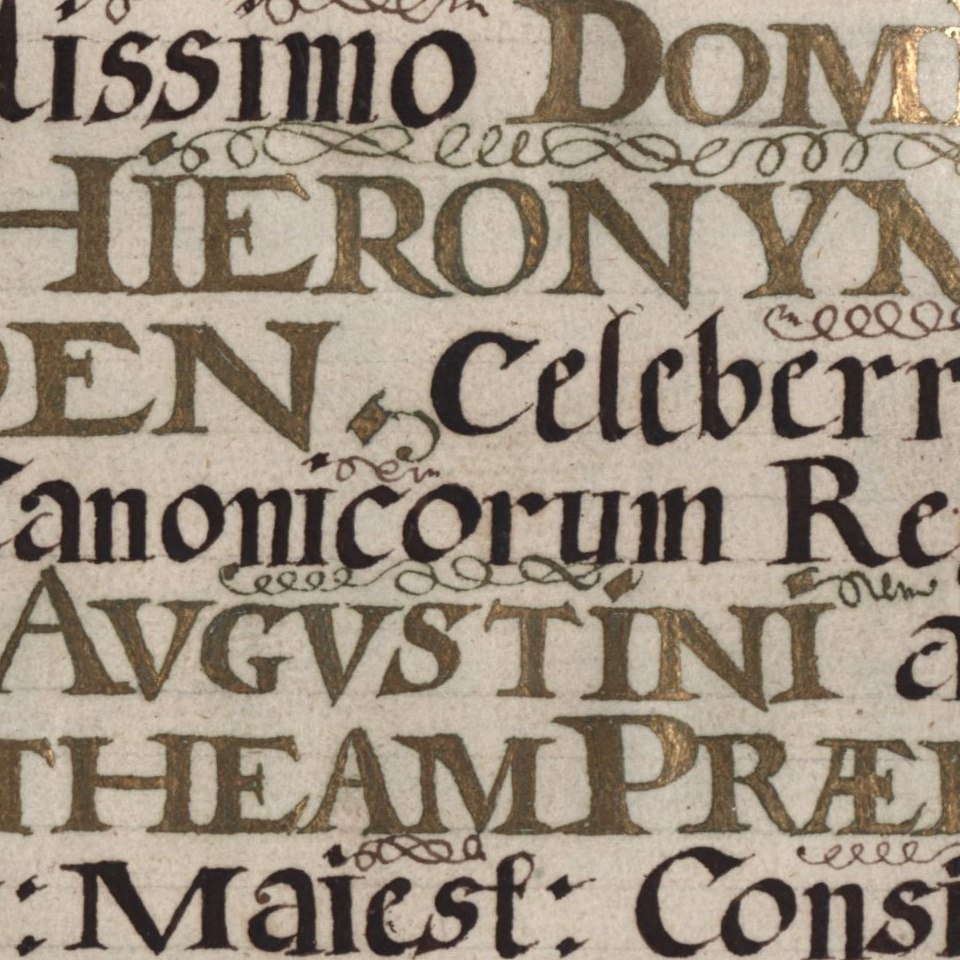 lissimo DOM
HIERONYM
DEN, Celeberr
Canonicorum Re
AVGVSTINI a
THEAM PRÆL
: Maiest: Consi